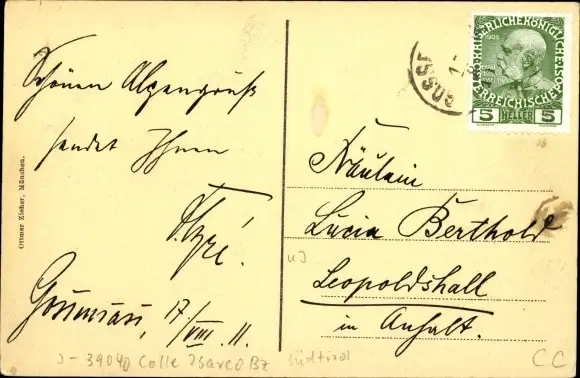 Schönen Alpengruß
sendet Ihnen
17/VIII. 11.
Ottmar Zieher, München.
KAISERLICHE KÖNIGLICHE
ÖSTERREICHISCHE POST
5 HELLER 5
GOSSE
Fräulein
Lucia Berthold
Leopoldshall
in Anhalt.
I-39040 Colle Isarco Bz Südtirol
CC